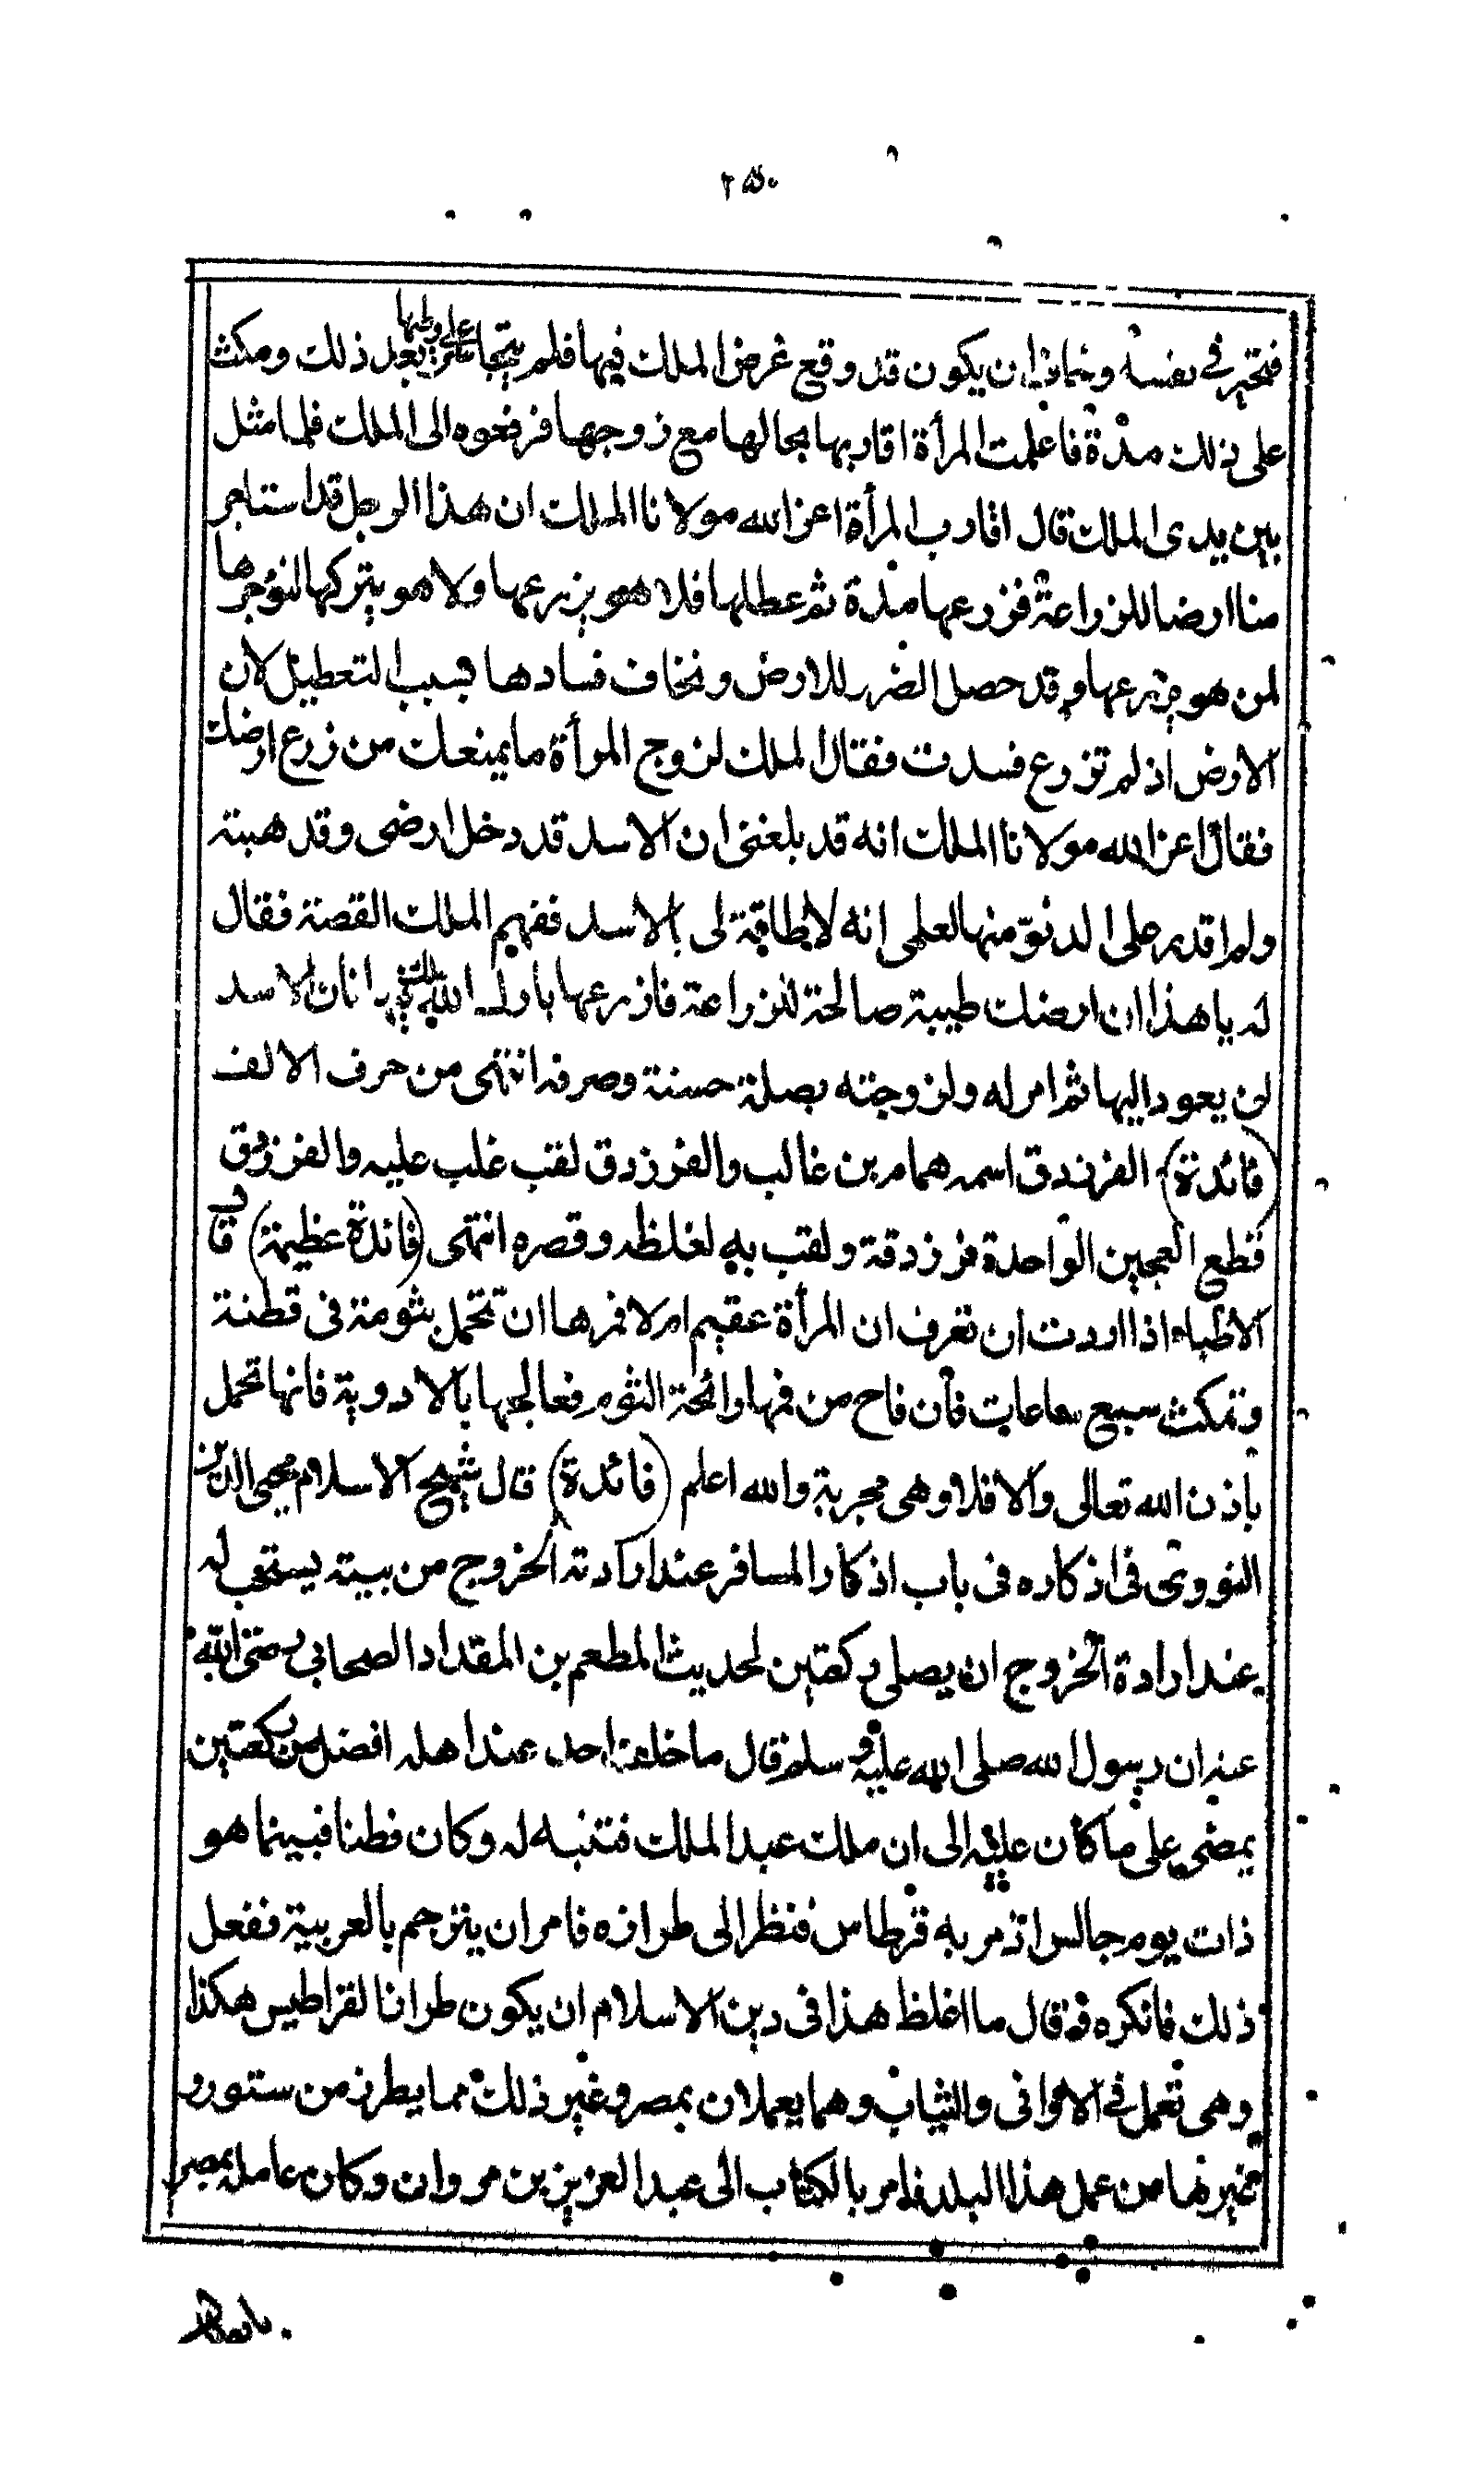 ٢٥٠
فتحير في نفسه وخاف ان يكون قد وقع غرض الملك فيها فلم يتجاسر على وطيها بعد ذلك ومكث
على ذلك مدة فاعلمت المرأة اقاربها بحالها مع زوجها فرفعوه الى الملك فلما مثل
بين يدى الملك قال اقارب المرأة اعز الله مولانا الملك ان هذا الرجل قد استاجر
منا ارضا للزراعة فزرعها مدة ثم عطلها فلا هو يزرعها ولا هو يتركها لنؤجرها
لمن هو يزرعها وقد حصل الضرر للارض ونخاف فسادها بسبب التعطيل لان
الارض اذ لم تزرع فسدت فقال الملك لزوج المرأة ما يمنعك من زرع ارضك
فقال اعز الله مولانا الملك انه قد بلغنى ان الاسد قد دخل ارضى وقد هبته
ولم اقدر على الدنو منها لعلمى انه لا طاقة لى بالاسد ففهم الملك القصة فقال
له يا هذا ان ارضك طيبة صالحة للزراعة فازرعها بارك الله لك فيها فان الاسد
لن يعود اليها ثم امر له ولزوجته بصلة حسنة وصرفه انتهى من حرف الالف
(فائدة) الفرزدق اسمه همام بن غالب والفرزدق لقب غلب عليه والفرزدق
قطع العجين الواحدة فرزدقة ولقب به لغلظه وقصره انتهى (فائدة عظيمة) قال
الاطباء اذا اردت ان تعرف ان المرأة عقيم ام لا فمرها ان تحمل بثومة فى قطنة
وتمكث سبع ساعات فان فاح من فمها رائحة الثوم فعالجها بالادوية فانها تحمل
باذن الله تعالى والا فلا وهى مجربة والله اعلم (فائدة) قال شيخ الاسلام محيى الدين
النووى فى اذكاره فى باب اذكار المسافر عند ارادته الخروج من بيته يستحب له
عند ارادة الخروج ان يصلى ركعتين لحديث المطعم بن المقداد الصحابي رضى الله
عنه ان رسول الله صلى الله عليه وسلم قال ما خلف احد عند اهله افضل من ركعتين
يمضى على ما كان عليه الى ان ملك عبد الملك فتنبه له وكان فطنا فبينما هو
ذات يوم جالس اذ مر به قرطاس فنظر الى طرازه فامر ان يترجم بالعربية ففعل
ذلك فانكره فقال ما اغلظ هذا فى دين الاسلام ان يكون طرازا لقراطيس هكذا
وهى تعمل فى الاوانى والثياب وهما يعملان بمصر وغير ذلك مما يطرز من ستور و
غيرها من عمل هذا البلد فامر بالكتاب الى عبد العزيز بن مروان وكان عامله بمصر